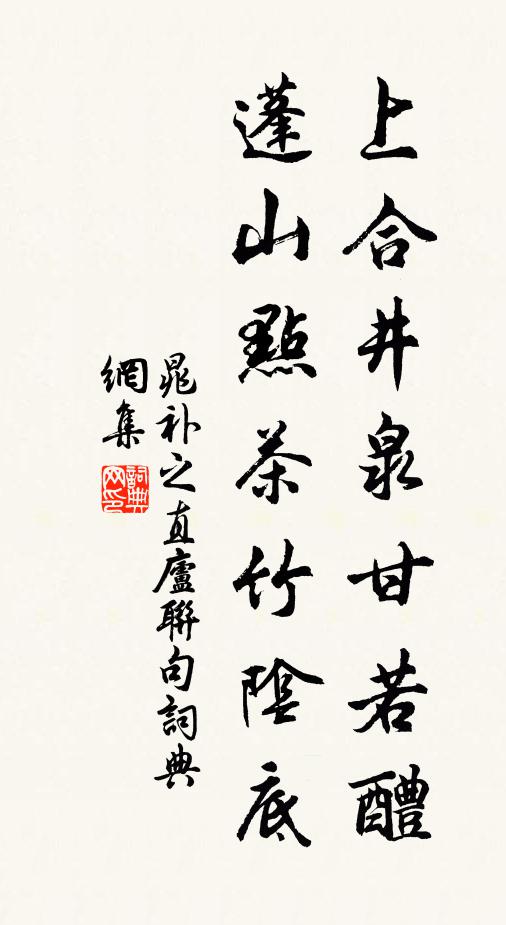 上合井泉甘若醴
蓬山點茶竹陰底
晁补之直廬聯句詞典
網集
詞典網印